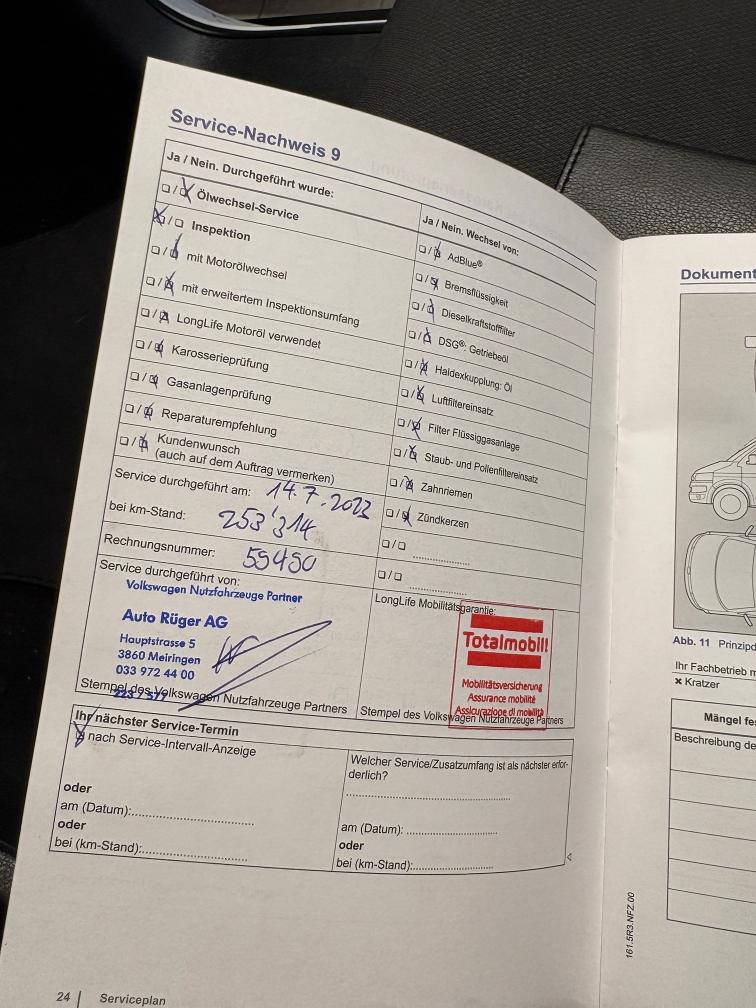 Service-Nachweis 9
Ja / Nein. Durchgeführt wurde:
❏/❏ Ölwechsel-Service
❏/❏ Inspektion
❏/❏ mit Motorölwechsel
❏/❏ mit erweitertem Inspektionsumfang
❏/❏ LongLife Motoröl verwendet
❏/❏ Karosserieprüfung
❏/❏ Gasanlagenprüfung
❏/❏ Reparaturempfehlung
❏/❏ Kundenwunsch
(auch auf dem Auftrag vermerken)
Service durchgeführt am: 14.7.2023
bei km-Stand: 253'314
Rechnungsnummer: 55450
Service durchgeführt von:
Volkswagen Nutzfahrzeuge Partner
Auto Rüger AG
Hauptstrasse 5
3860 Meiringen
033 972 44 00
Stempel des Volkswagen Nutzfahrzeuge Partners
Ja / Nein. Wechsel von:
❏/❏ AdBlue®
❏/❏ Bremsflüssigkeit
❏/❏ Dieselkraftstofffilter
❏/❏ DSG®: Getriebeöl
❏/❏ Haldexkupplung: Öl
❏/❏ Luftfiltereinsatz
❏/❏ Filter Flüssiggasanlage
❏/❏ Staub- und Pollenfiltereinsatz
❏/❏ Zahnriemen
❏/❏ Zündkerzen
❏/❏ ....................
❏/❏ ....................
LongLife Mobilitätsgarantie:
Totalmobil!
Mobilitätsversicherung
Assurance mobilité
Assicurazione di mobilità
Stempel des Volkswagen Nutzfahrzeuge Partners
Ihr nächster Service-Termin
❏ nach Service-Intervall-Anzeige
oder
am (Datum):....................
oder
bei (km-Stand):....................
Welcher Service/Zusatzumfang ist als nächster erfor-
derlich?
....................
am (Datum): ....................
oder
bei (km-Stand):....................
24 | Serviceplan
Dokument
Abb. 11 Prinzipd
Ihr Fachbetrieb m
× Kratzer
Mängel fes
Beschreibung de
161.5R3.NFZ.00